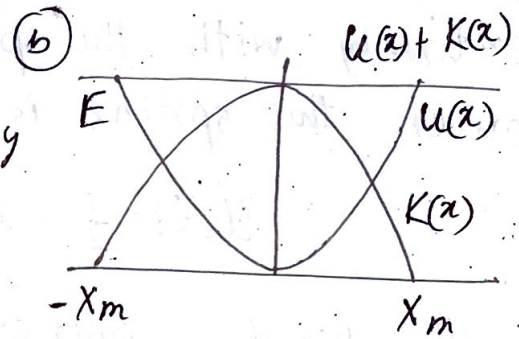 b
U(x) + K(x)
E
U(x)
y
K(x)
-Xm
Xm